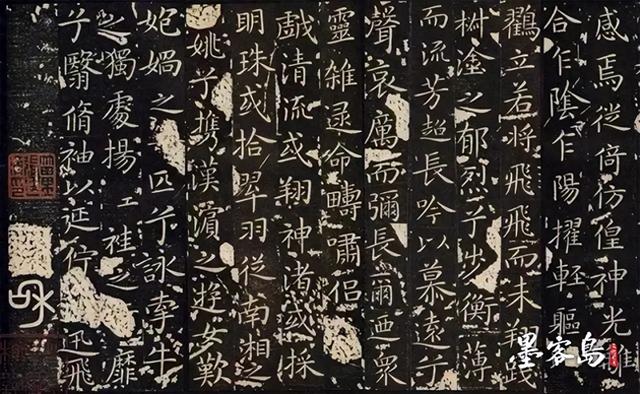 感焉徙倚仿偟神光離
合乍陰乍陽擢輕軀
鸖立若將飛飛而未翔踐
樹塗之郁烈兮步衡薄
而流芳超長吟以慕遠兮
聲哀厲而彌長爾迺眾
靈雜遝命疇嘯侶
戲清流或翔神渚或採
明珠或拾翠羽從南湘之
姚兮攜漢濱之遊女歎
媧之匹兮詠牽牛
之獨處揚袿之靡
兮翳脩袖以延佇迅飛
墨客島